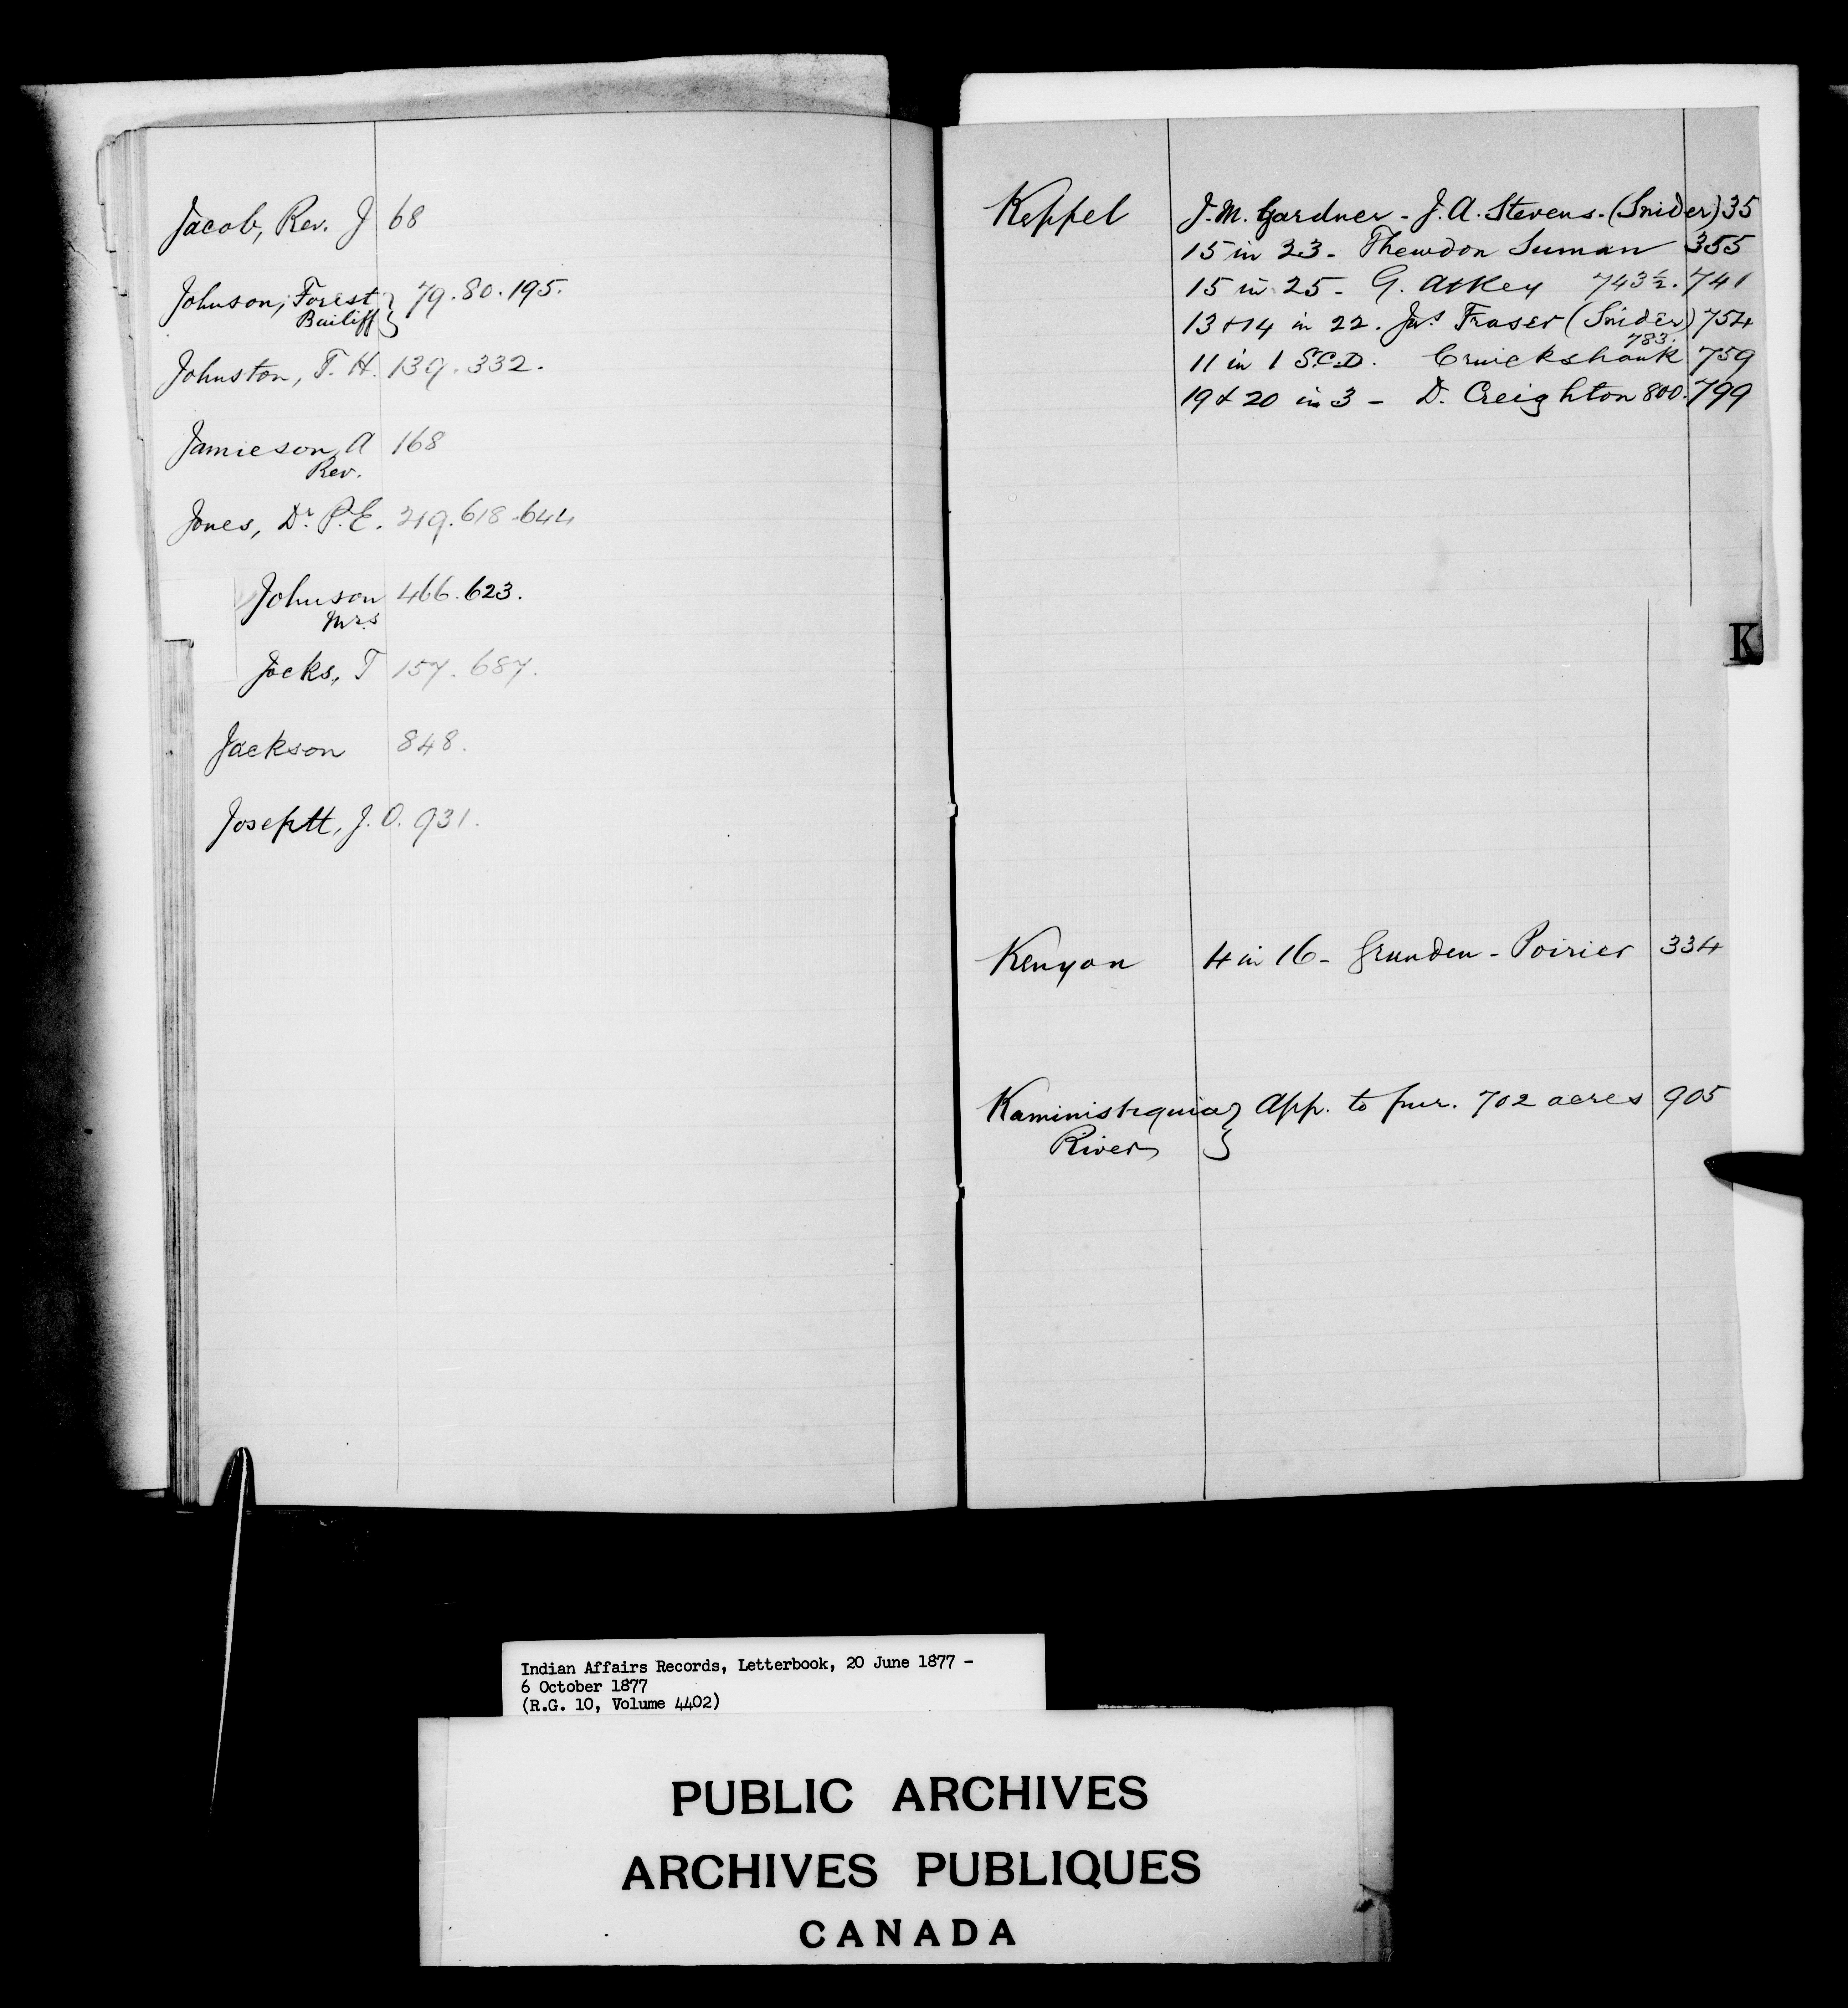 Jacob, Rev. J 68
Johnson, Forest } 79. 80. 195.
Bailiff }
Johnston, T. H. 139. 332.
Jamieson, A 168
Rev.
Jones, Dr. P. E. 219. 618. 644
Johnson 466. 623.
Mrs
Jocks, T 157. 687.
Jackson 848.
Josephtt, J. O. 931.
Keppel J. M. Gardner - J. A. Stevens - (Snider) 35
15 in 23 - Thewdon Suman 355
15 in 25 - G. Atkey 743½. 741
13 & 14 in 22. Jas Fraser (Snider) 754
783.
11 in 1 S.C.D. Cruickshank 759
19 & 20 in 3 - D. Creighton 800. 799
K
Kenyon 4 in 16 - Grunden - Poirier 334
Kaministiquia } App. to pur. 702 acres 905
River }
Indian Affairs Records, Letterbook, 20 June 1877 -
6 October 1877
(R.G. 10, Volume 4402)
PUBLIC ARCHIVES
ARCHIVES PUBLIQUES
CANADA